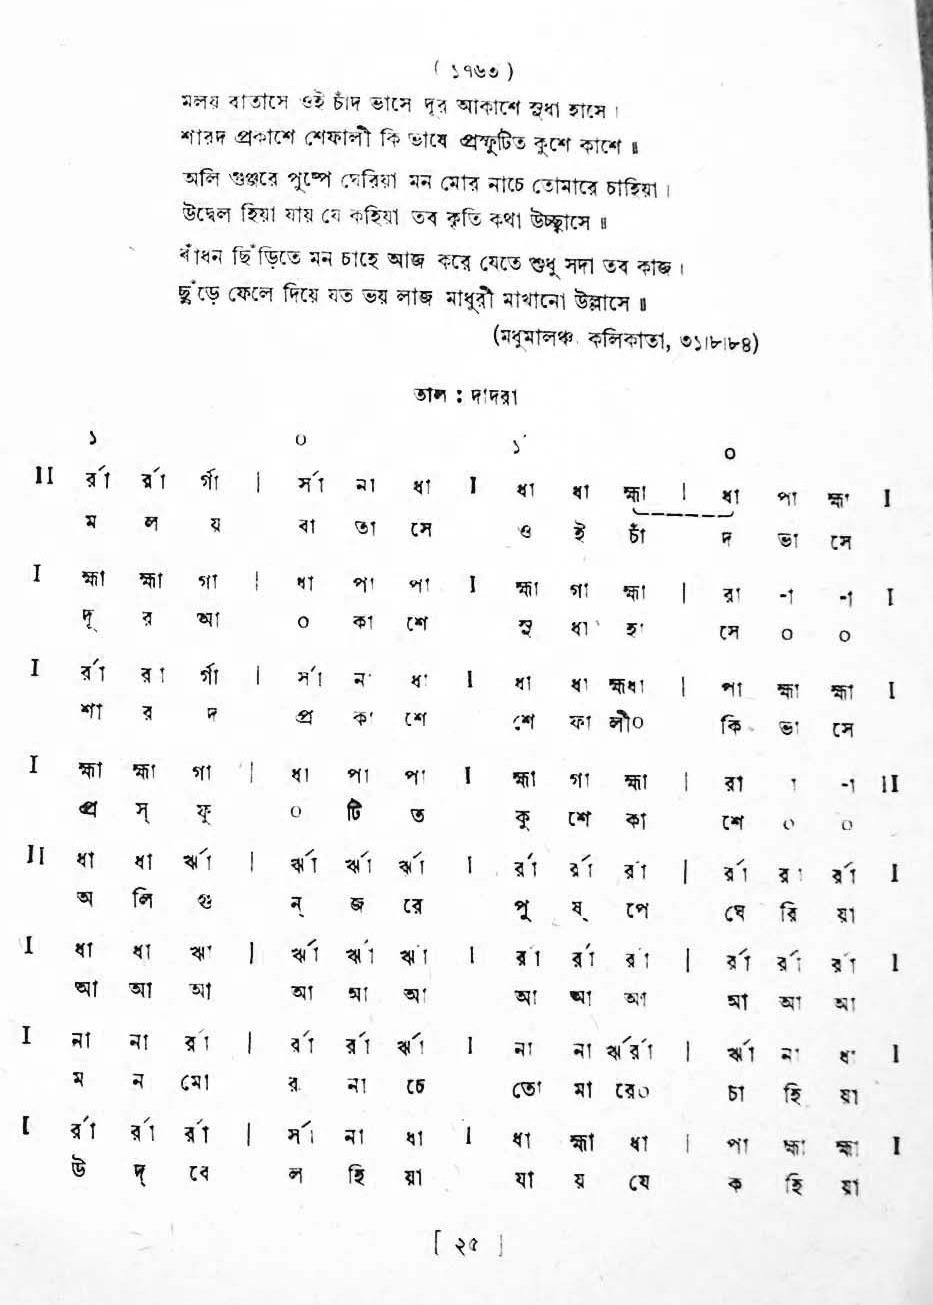 ( ১৭৬৩ )
মলয় বাতাসে ওই চাঁদ ভাসে দূর আকাশে সুধা হাসে ।
শারদ প্রকাশে শেফালী কি ভাষে প্রস্ফুটিত কুশে কাশে ॥
অলি গুঞ্জরে পুষ্পে ঘেরিয়া মন মোর নাচে তোমারে চাহিয়া ।
উদ্বেল হিয়া যায় যে কহিয়া তব কৃতি কথা উচ্ছ্বাসে ॥
বাঁধন ছিঁড়িতে মন চাহে আজ করে যেতে শুধু সদা তব কাজ ।
ছুঁড়ে ফেলে দিয়ে যত ভয় লাজ মাধুরী মাখানো উল্লাসে ॥
(মধুমালঞ্চ কলিকাতা, ৩১।৮।৮৪)
তাল : দাদরা
১ ০ ১´ ০
II র্রা র্রা র্গা | র্সা না ধা I ধা ধা হ্মা | ধা পা হ্মা I
ম ল য় বা তা সে ও ই চাঁ দ ভা সে
I হ্মা হ্মা গা | ধা পা পা I হ্মা গা হ্মা | রা -া -া I
দূ র আ ০ কা শে সু ধা হা সে ০ ০
I র্রা র্রা র্গা | র্সা না ধা I ধা ধা হ্মধা | পা হ্মা হ্মা I
শা র দ প্র কা শে শে ফা লী০ কি ভা সে
I হ্মা হ্মা গা | ধা পা পা I হ্মা গা হ্মা | রা া -া II
প্র স্ ফু ০ টি ত কু শে কা শে ০ ০
II ধা ধা র্ঋা | র্ঋা র্ঋা র্ঋা I র্রা র্রা র্রা | র্রা র্রা র্রা I
অ লি গু ন্ জ রে পু ষ্ পে ঘে রি য়া
I ধা ধা ঋা | র্ঋা র্ঋা র্ঋা I র্রা র্রা র্রা | র্রা র্রা র্রা I
আ আ আ আ আ আ আ আ আ আ আ আ
I না না র্রা | র্রা র্রা র্ঋা I না না র্ঋর্রা | র্ঋা না ধা I
ম ন মো র না চে তো মা রে০ চা হি য়া
I র্রা র্রা র্রা | র্সা না ধা I ধা হ্মা ধা | পা হ্মা হ্মা I
উ দ্ বে ল হি য়া যা য় যে ক হি য়া
[ ২৫ ]